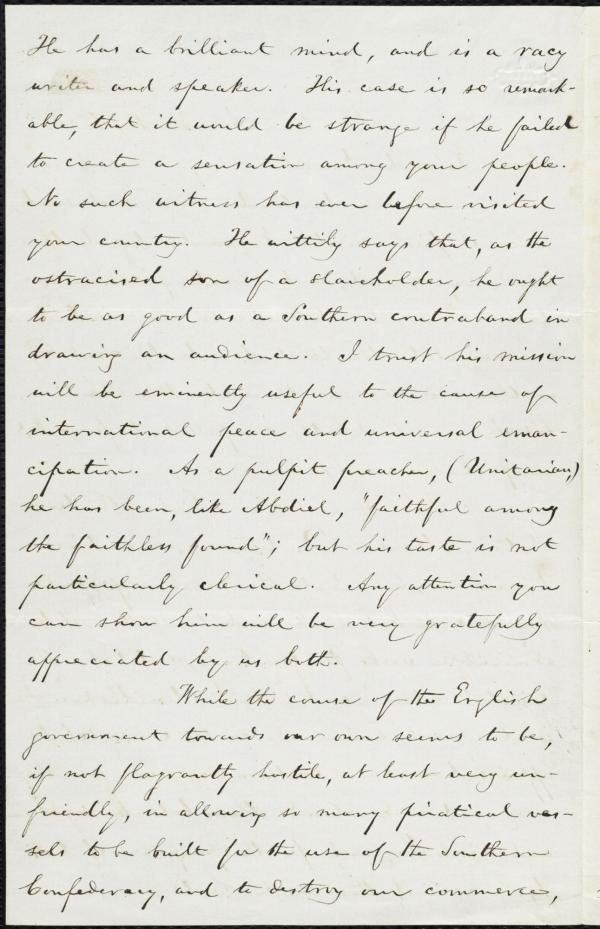 He has a brilliant mind, and is a racy
writer and speaker. His case is so remark-
able, that it would be strange if he failed
to create a sensation among your people.
No such witness has ever before visited
your country. He wittily says that, as the
ostracised son of a slaveholder, he ought
to be as good as a Southern contraband in
drawing an audience. I trust his mission
will be eminently useful to the cause of
international peace and universal eman-
cipation. As a pulpit preacher, (Unitarian,)
he has been, like Abdiel, "faithful among
the faithless found"; but his taste is not
particularly clerical. Any attention you
can show him will be very gratefully
appreciated by us both.
While the course of the English
government towards our own seems to be,
if not flagrantly hostile, at least very un-
friendly, in allowing so many piratical ves-
sels to be built for the use of the Southern
Confederacy, and to destroy our commerce,